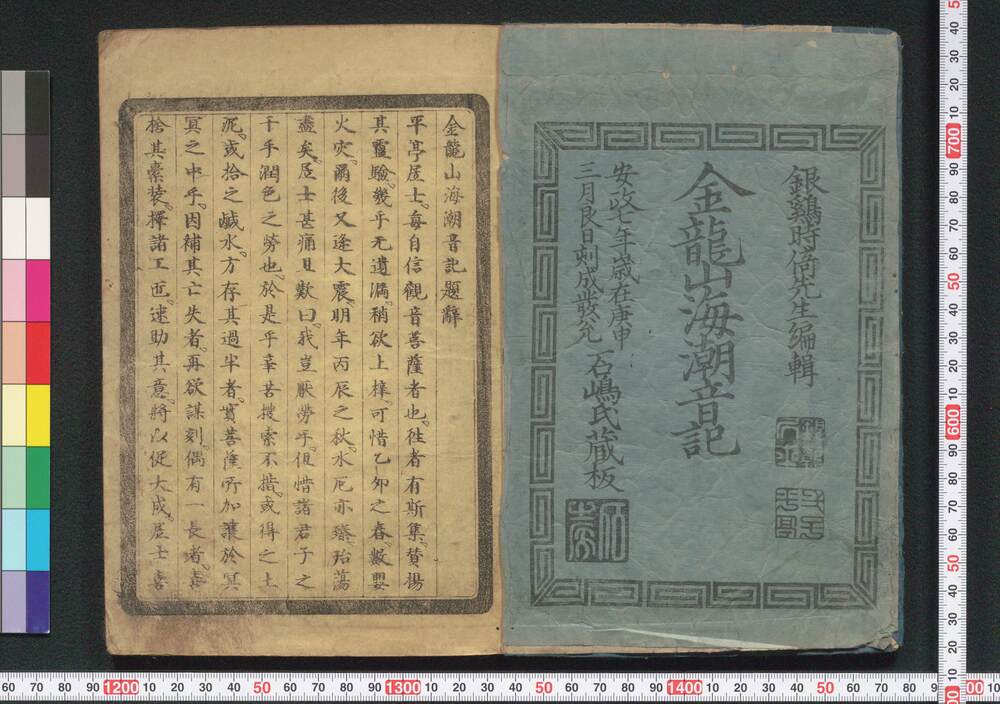 銀鷄時倚先生編輯
金龍山海潮音記
安政七年歳在庚申
三月良日刻成發兌
石嶋氏蔵板
金龍山海潮音記題辭
平亭居士。每自信觀音菩薩者也。往者有斯集。賛揚
其靈驗。幾乎无遺漏。稍欲上梓。可惜乙卯之春。數嬰
火灾。爾後又逢大震。明年丙辰之秋。水厄亦臻。殆蕩
盡矣。居士甚痛且歎曰。我豈厭勞乎。但惜諸君子之
千乎潤色之勞也。於是乎辛苦搜索不措。或得之土
泥。或拾之鹹水。方存其過半者。實菩薩所加護於冥
冥之中乎。因補其亡失者。再欲謀刻。偶有一長者。喜
捨其橐装。擇諸工匠。速助其意。將以促大成。居士喜